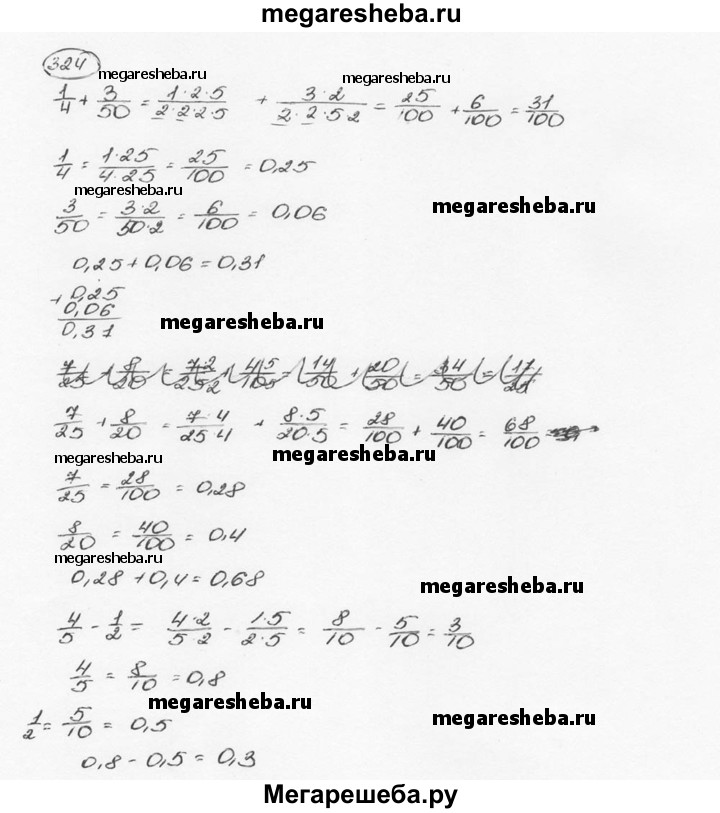 megaresheba.ru
324
megaresheba.ru
megaresheba.ru
1/4 + 3/50 = 1·2·5/2·2·2·5 + 3·2/2·2·5·2 = 25/100 + 6/100 = 31/100
1/4 = 1·25/4·25 = 25/100 = 0,25
megaresheba.ru
3/50 = 3·2/50·2 = 6/100 = 0,06
megaresheba.ru
0,25 + 0,06 = 0,31
+ 0,25
0,06
0,31
megaresheba.ru
7/25 + 8/20 = 7·4/25·4 + 8·5/20·5 = 28/100 + 40/100 = 68/100
megaresheba.ru
megaresheba.ru
7/25 = 28/100 = 0,28
8/20 = 40/100 = 0,4
megaresheba.ru
0,28 + 0,4 = 0,68
megaresheba.ru
4/5 - 1/2 = 4·2/5·2 - 1·5/2·5 = 8/10 - 5/10 = 3/10
4/5 = 8/10 = 0,8
megaresheba.ru
1/2 = 5/10 = 0,5
megaresheba.ru
0,8 - 0,5 = 0,3
Мегарешеба.ру